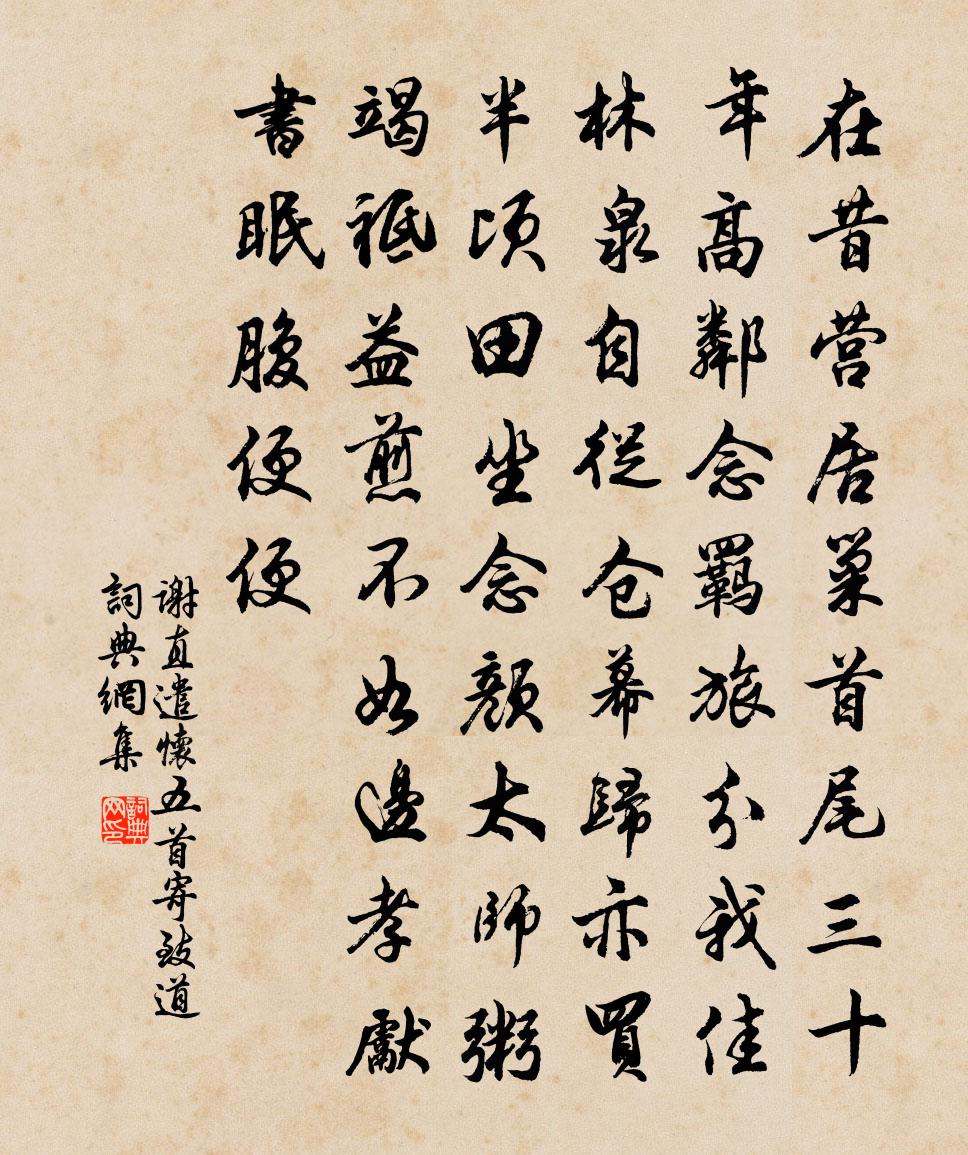 在昔营居巢首尾三十
年高鄰念羈旅分我佳
林泉自從仓幕歸亦買
半顷田坐念顏太師粥
竭祗益煎不如邊孝獻
書眠腹便便
謝直遣懷五首寄致道
詞典網集
詞典网印